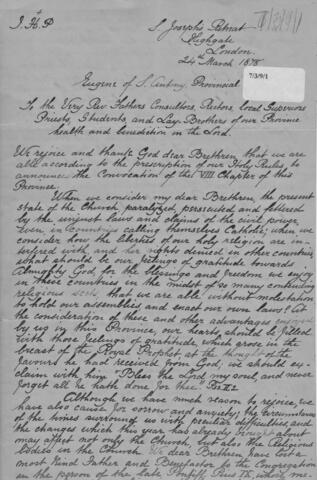 J. H. P.
St Josephs Retreat
Highgate
London.
24th March 1878
7/3/9/1
7/3/9/1
Eugene of St Antony, Provincial
To the Very Rev Fathers Consultors, Rectors, local Superiors
Priests, Students, and Lay-Brothers of our Province
health and benediction in the Lord.
We rejoice and thank God dear Brethren, that we are
able according to the prescription of our Holy Rules to
announce the Convocation of the VIII Chapter of this
Province.
When we consider my dear Brethren, the present
state of the Church paralyzed, persecuted and fettered
by the unjust laws and claims of the civil power
even in countries calling themselves Catholic, when we
consider how the liberties of our holy religion are in-
terfered with and her rights denied in other countries,
what should be our feelings of gratitude towards
Almighty God, for the blessings and freedom we enjoy
in these countries in the midst of so many contending
religious sects, that we are able without molestation
to hold our assemblies and enact our own laws! At
the consideration of these and other advantages enjoyed
by us in this Province, our hearts should be filled
with those feelings of gratitude, which arose in the
breast of the Royal Prophet at the thought of the
favours he had received from God; we should ex-
claim with him "Bless the Lord my soul, and never
forget all he hath done for thee"
Although we have much reason to rejoice, we
have also cause for sorrow and anxiety; the circumstances
of the times surround us with peculiar difficulties and
the changes which this year has already brought about
may affect not only the Church, but also the Religious
bodies in the Church. We dear Brethren have lost a
most kind Father and Benefactor to the Congregation
in the person of the late Pontiff Pius IX, whose me-